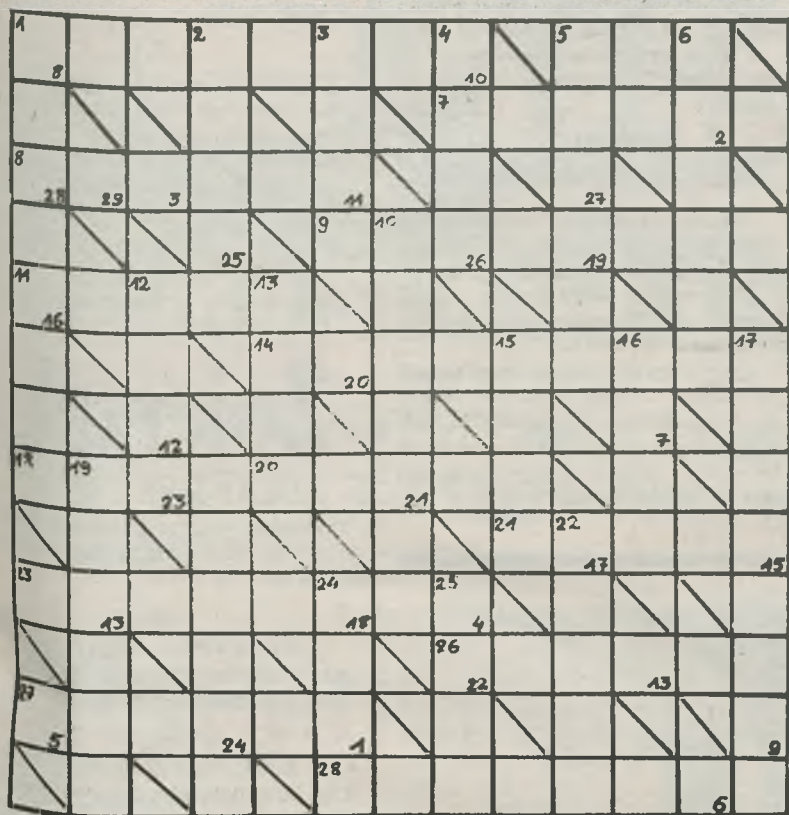 1 2 3 4 5 6
8 10
7
2
8
28 29 3 11 27
9 10
25 26 19
11 12 13
16
14 15 16 17
20
12 7
19 20
23 21
21 22
17 15
23 24 25
13 18 4
26
22 13
27
5 24 1 9
28
6